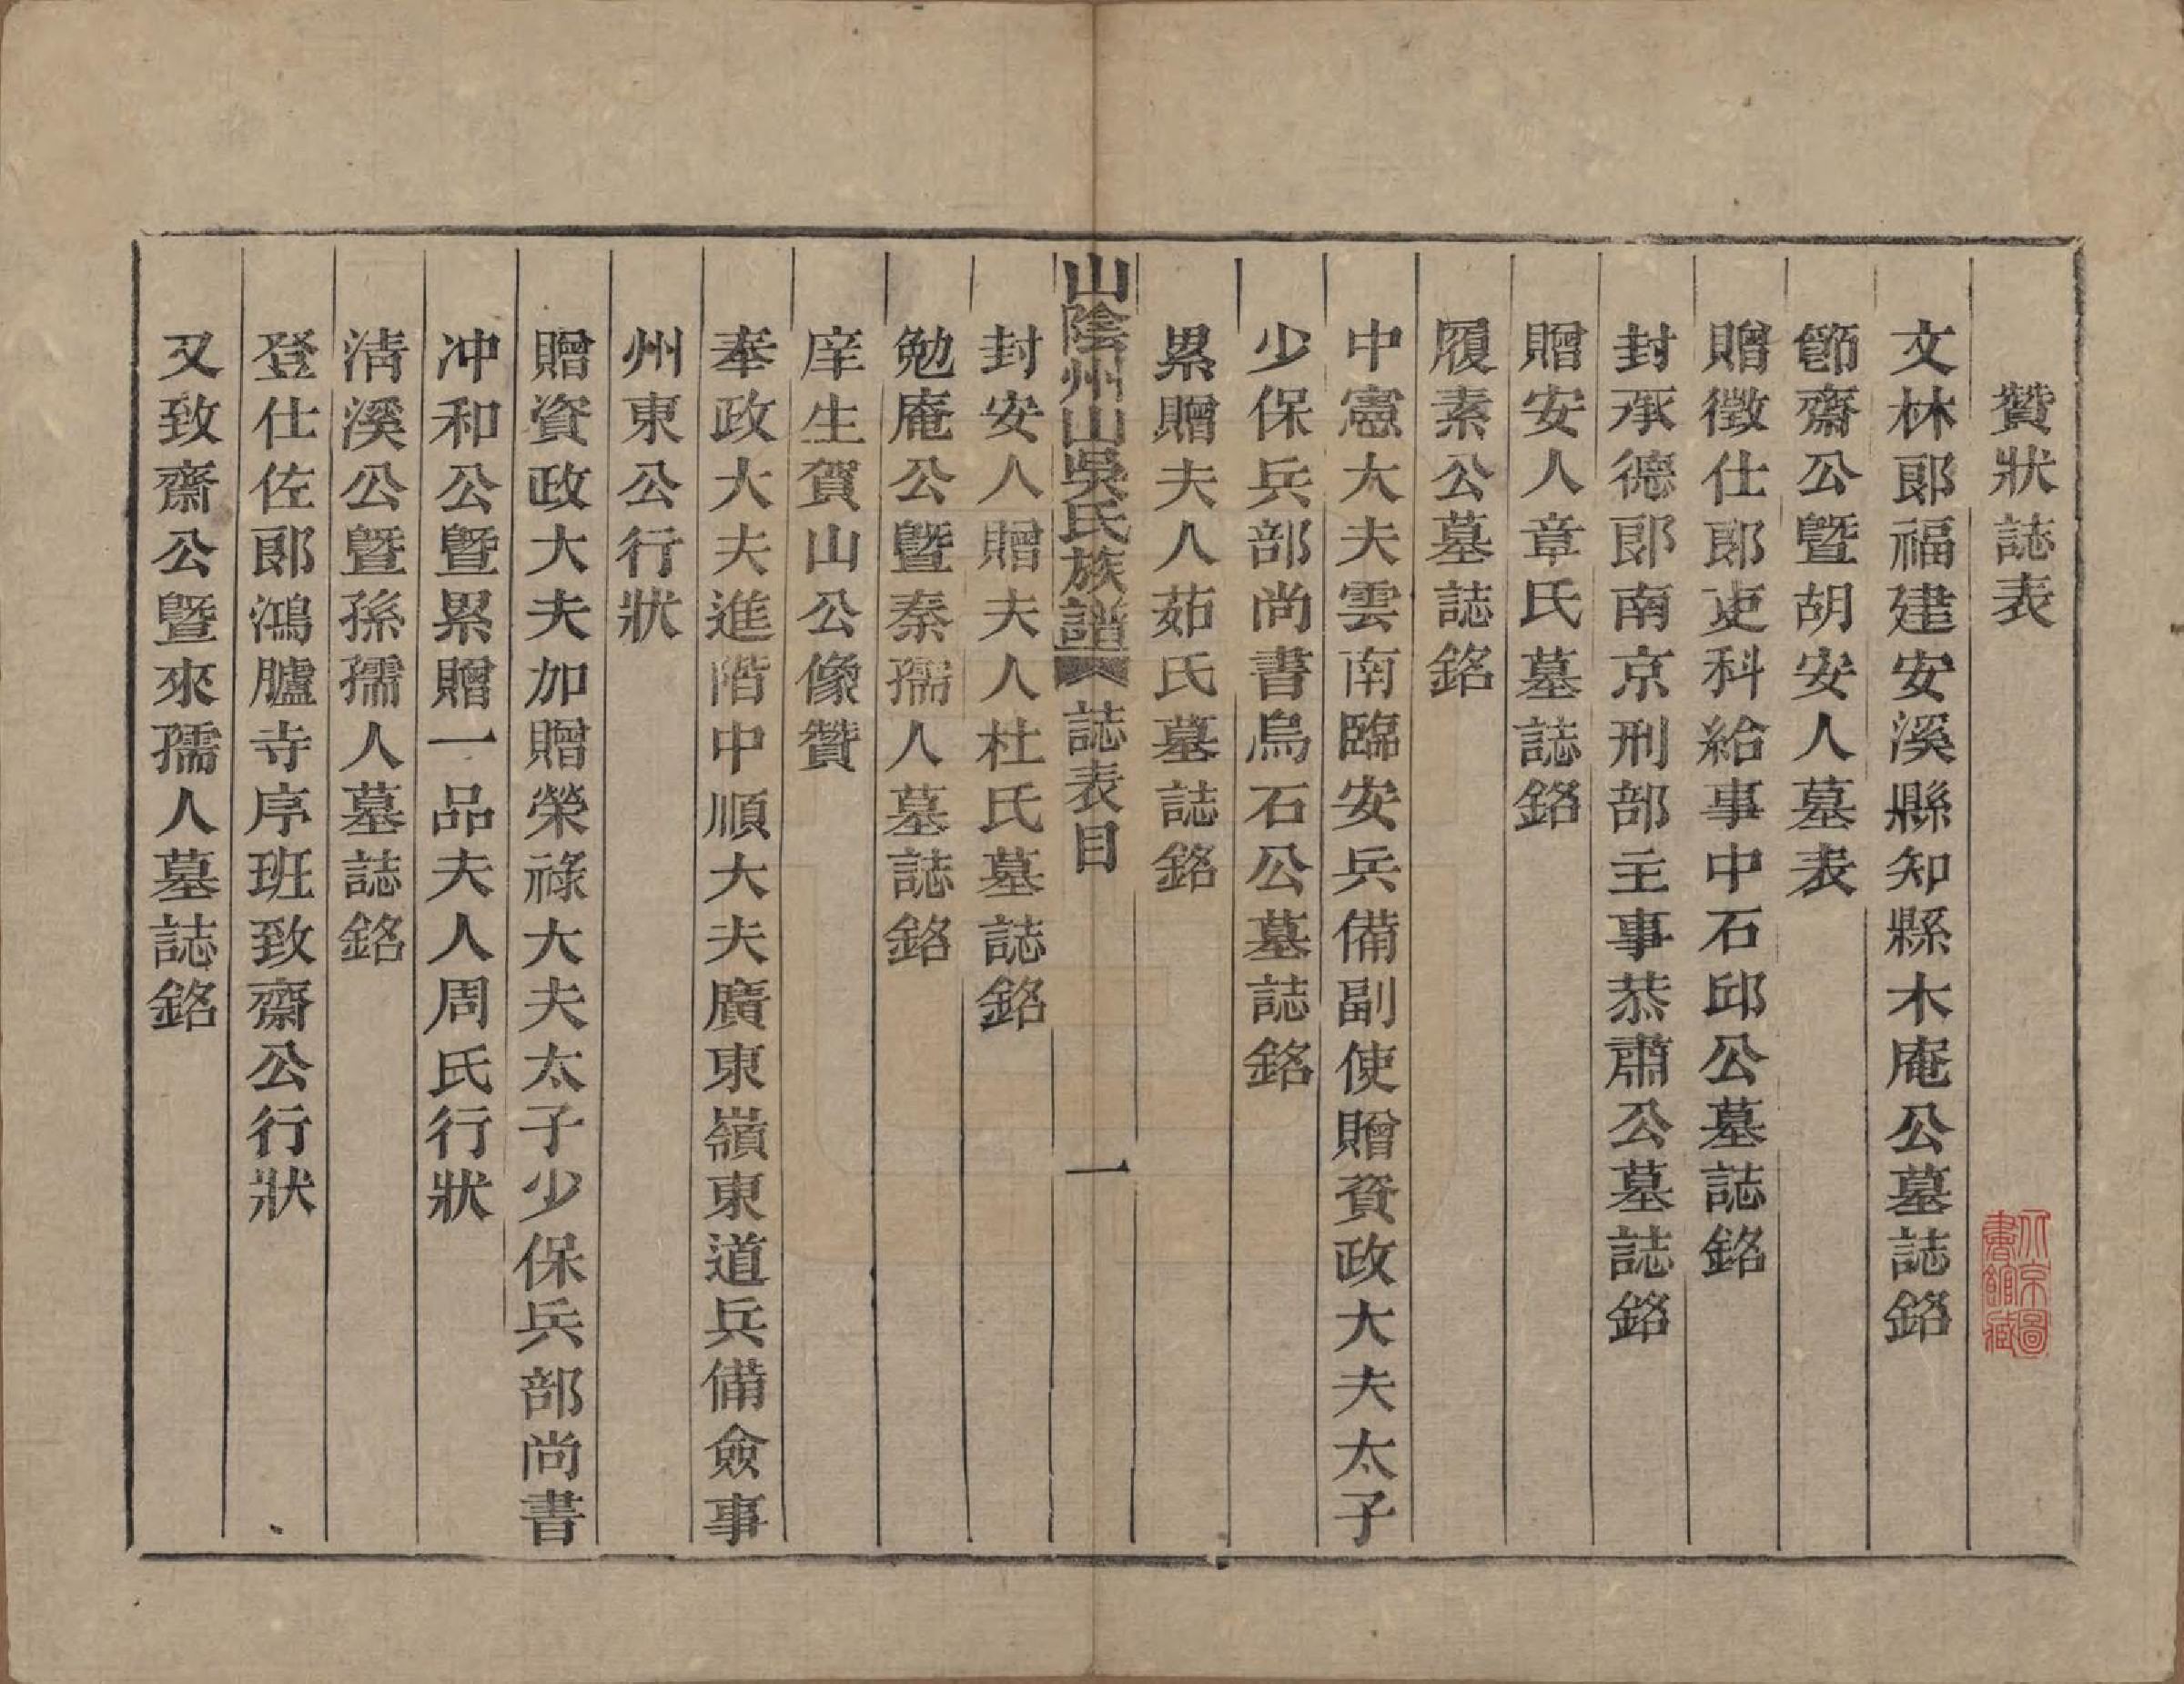 贊狀誌表
文林郞福建安溪縣知縣木庵公墓誌銘
節齋公曁胡安人墓表
贈徵仕郞吏科給事中石邱公墓誌銘
封承德郞南京刑部主事恭肅公墓誌銘
贈安人章氏墓誌銘
履素公墓誌銘
中憲大夫雲南臨安兵備副使贈資政大夫太子
少保兵部尚書烏石公墓誌銘
累贈夫人茹氏墓誌銘
山陰州山吳氏族譜 誌表目 一
封安人贈夫人杜氏墓誌銘
勉庵公曁秦孺人墓誌銘
庠生賀山公像贊
奉政大夫進階中順大夫廣東嶺東道兵備僉事
州東公行狀
贈資政大夫加贈榮祿大夫太子少保兵部尚書
冲和公曁累贈一品夫人周氏行狀
淸溪公曁孫孺人墓誌銘
登仕佐郞鴻臚寺序班致齋公行狀
又致齋公曁來孺人墓誌銘
北京圖
書館藏